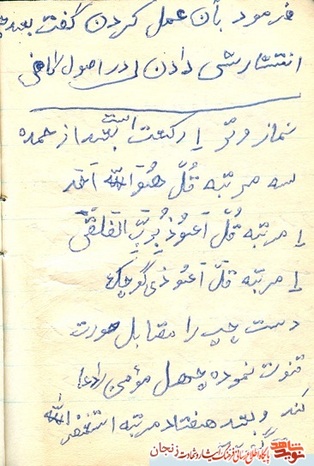 فرمود بآن عمل کردن گفت بعد
انتشارش دادن در اصول کافی
نماز وتر ۱ رکعت است بعد از حمد
سه مرتبه قُل هُوَ اللّٰه اَحَد
۱ مرتبه قُل اَعُوذُ بِرَبِّ الفَلَق
۱ مرتبه قُل اَعُوذ کوچک
دست چپ را مقابل صورت
قنوت نموده چهل مؤمن را دعا
کند و بعد هفتاد مرتبه استغفر اللّٰه
نوید شاهد
پایگاه اطلاع رسانی فرهنگ ایثار و شهادت زنجان